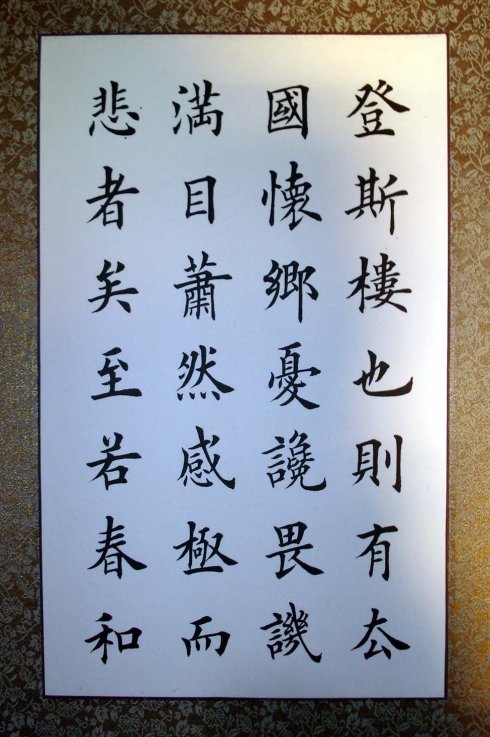 登斯樓也則有厺
國懷鄉憂讒畏譏
満目蕭然感極而
悲者矣至若春和